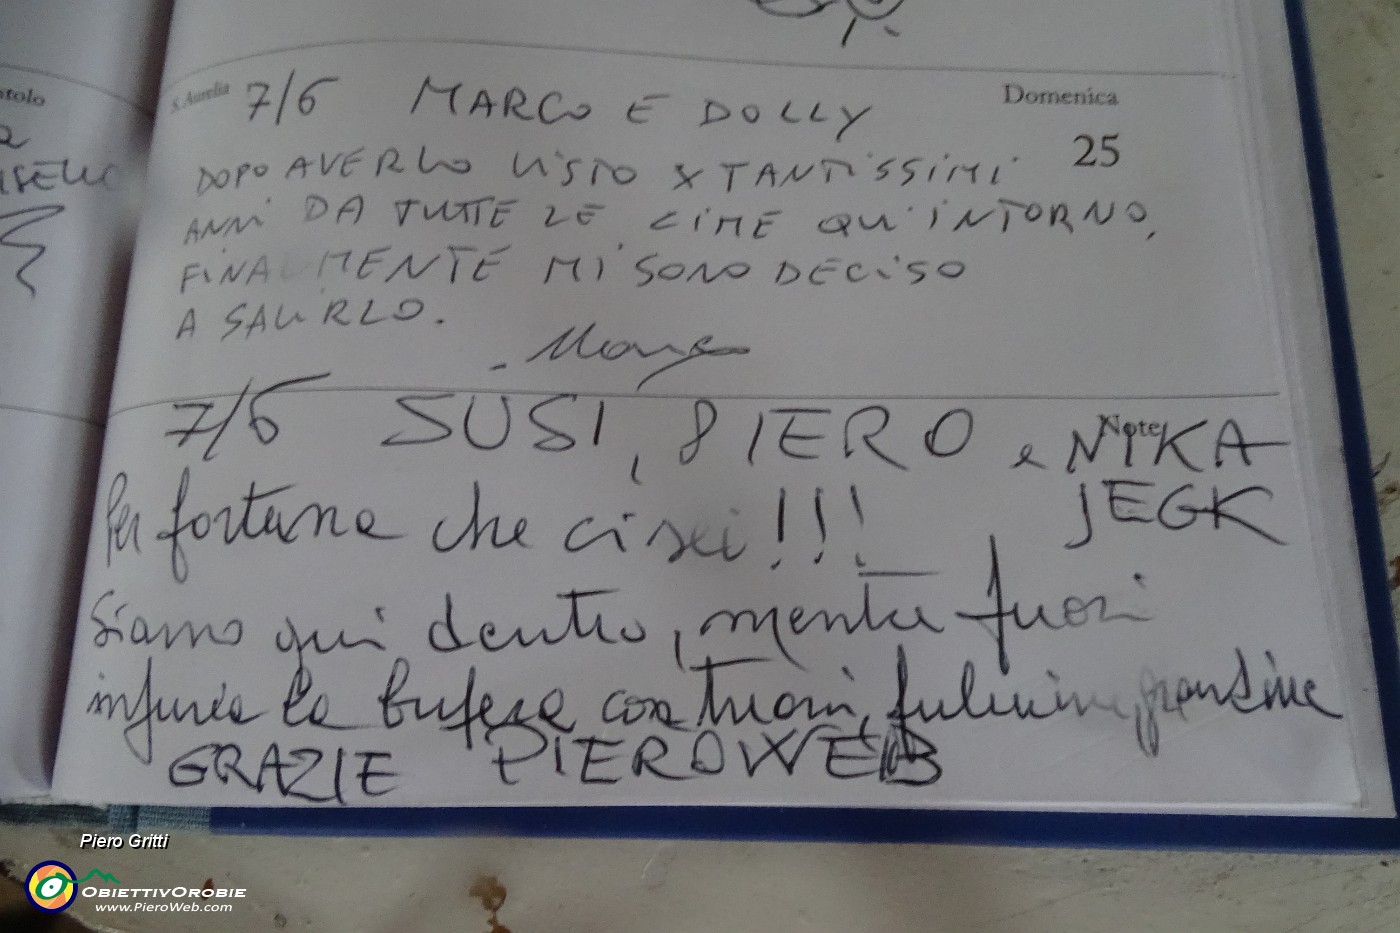 stolo
S. Aurelia 7/6 MARCO E DOLLY Domenica
25
DOPO AVERLO VISTO X TANTISSIMI
ANNI DA TUTTE LE CIME QUI INTORNO,
FINALMENTE MI SONO DECISO
A SALIRLO.
7/6 SUSI, PIERO e NIKA
Note
JEGK
Per fortuna che ci sei!!!
Siamo qui dentro, mentre fuori
infuria la bufera con tuoni, fulmini, grandine
GRAZIE PIEROWEB
Piero Gritti
OBIETTIVOROBIE
www.PieroWeb.com